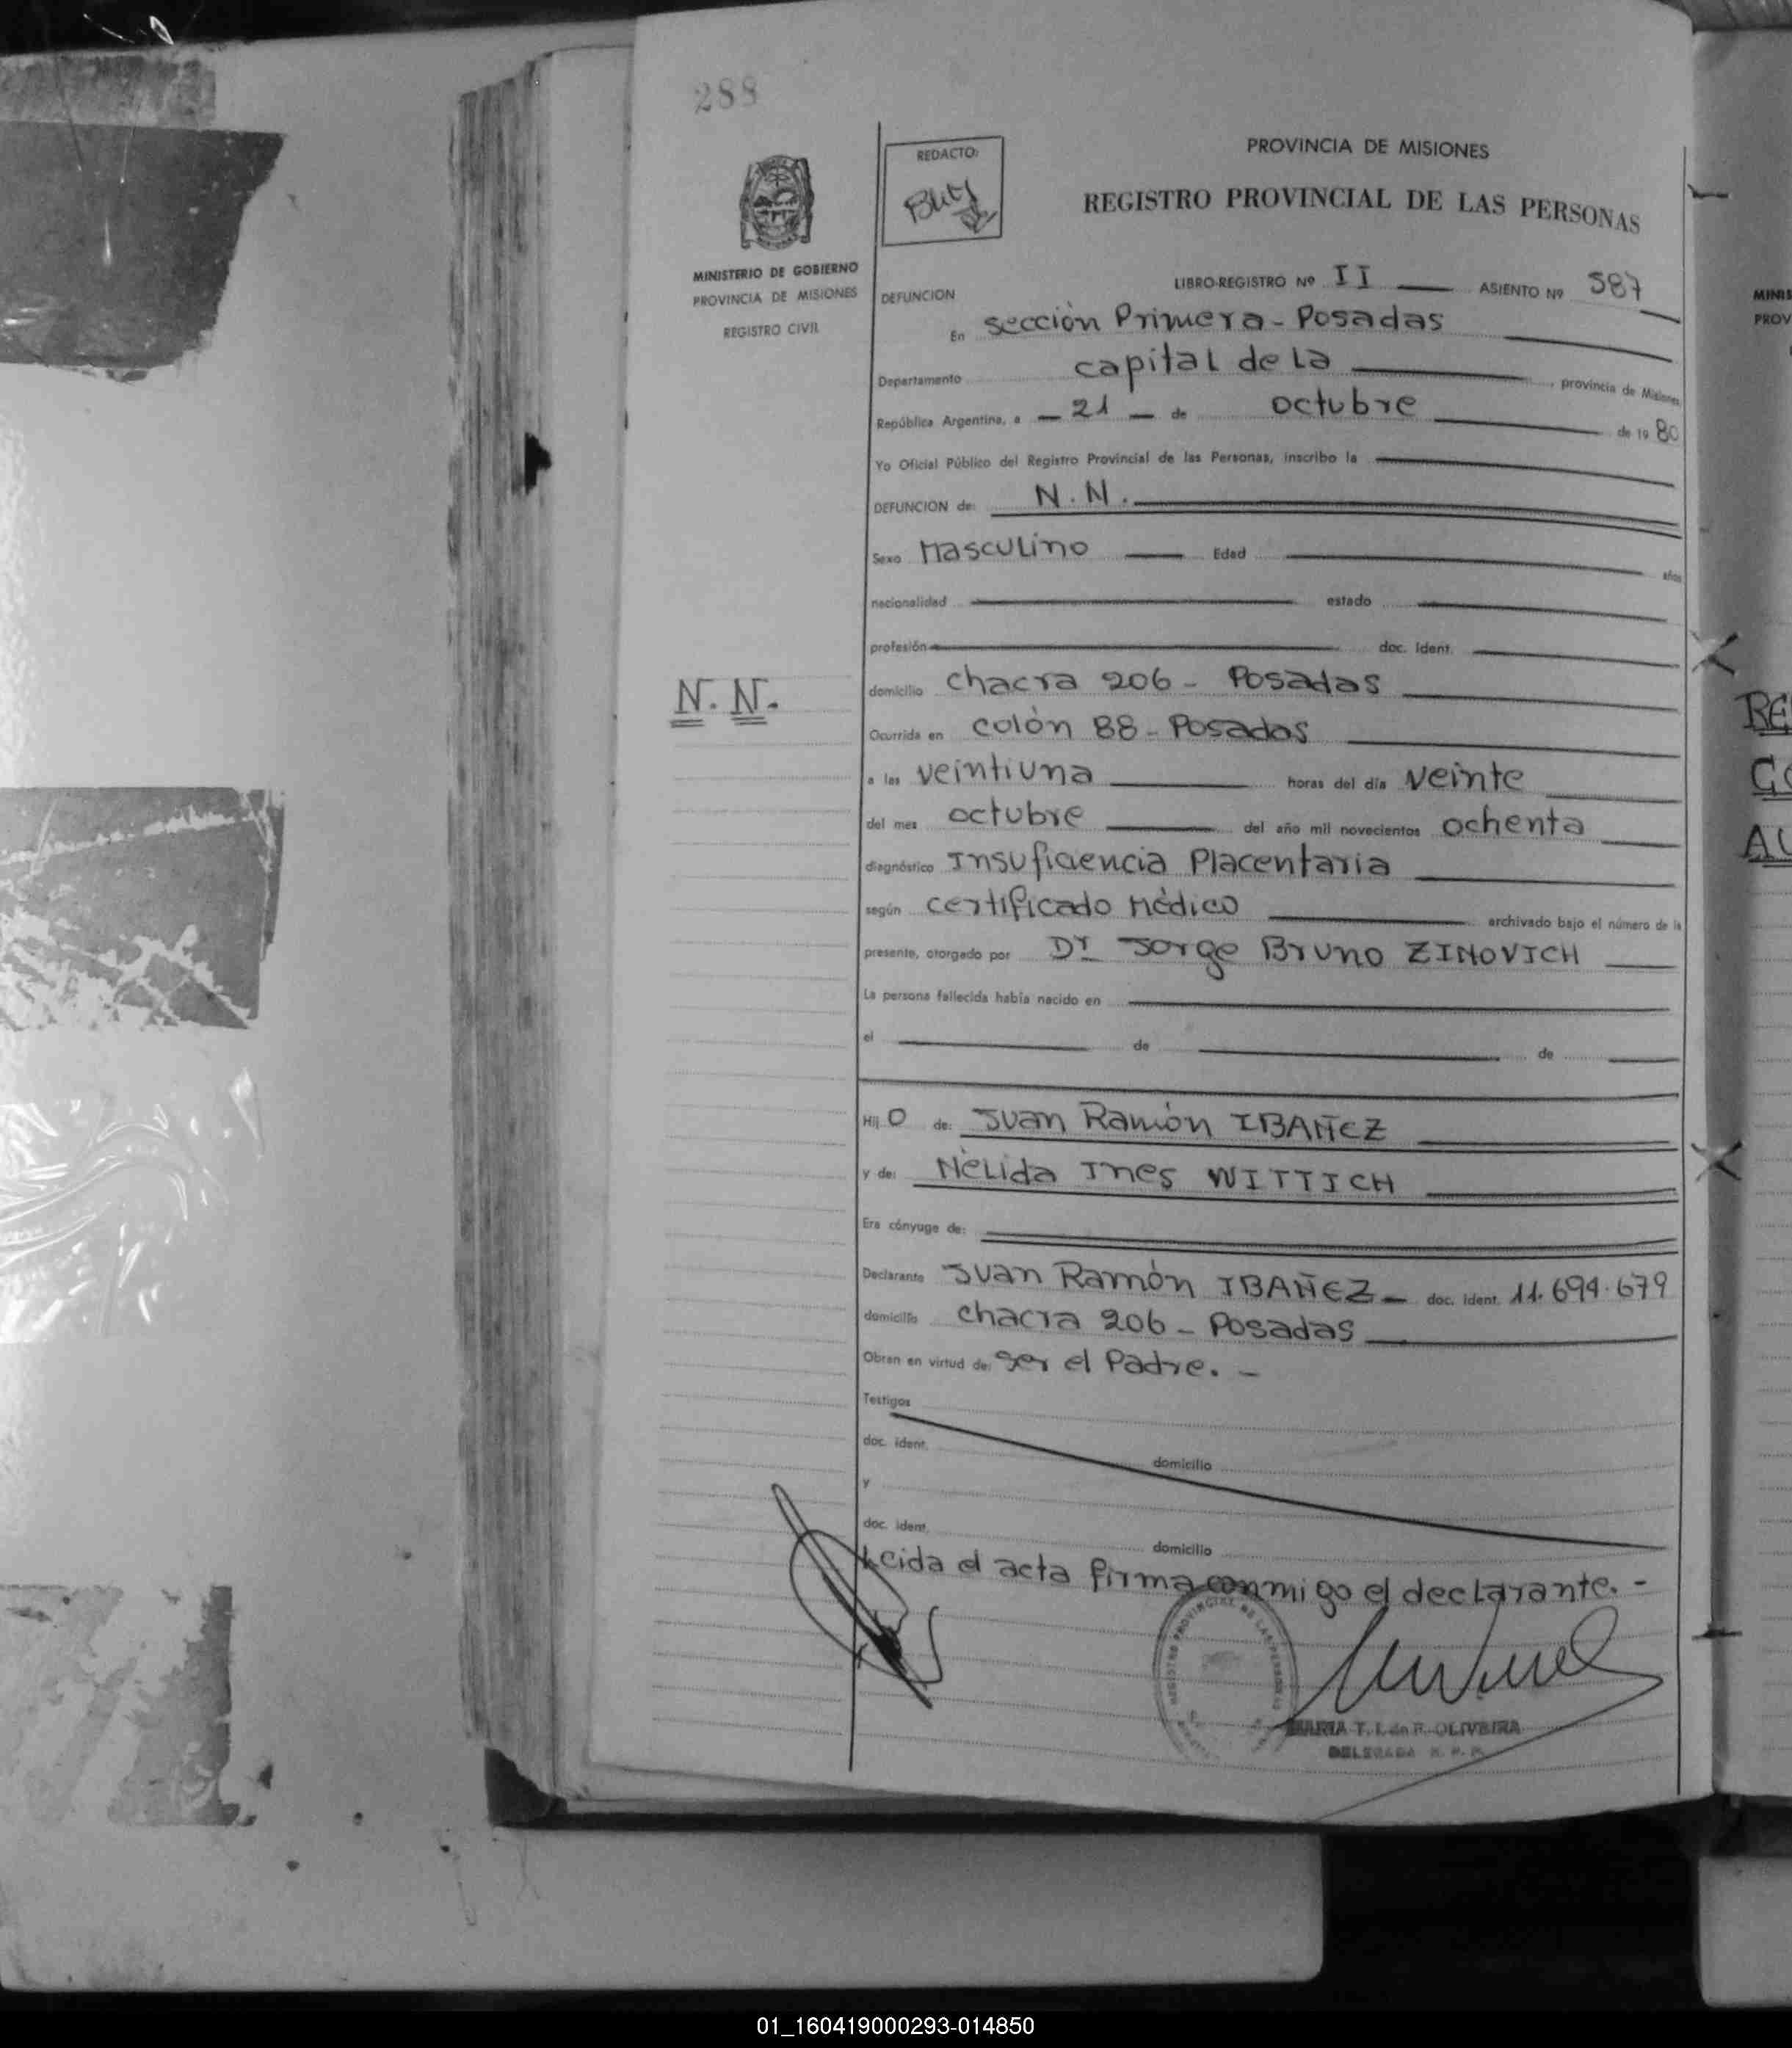 288
REDACTO:
PROVINCIA DE MISIONES
REGISTRO PROVINCIAL DE LAS PERSONAS
MINISTERIO DE GOBIERNO
PROVINCIA DE MISIONES
REGISTRO CIVIL
LIBRO-REGISTRO Nº II ASIENTO Nº 587
DEFUNCION
En sección Primera - Posadas
Departamento capital de La provincia de Misiones
República Argentina, a - 21 - de octubre de 19 80
Yo Oficial Público del Registro Provincial de las Personas, inscribo la
DEFUNCION de: N.N.
Sexo Masculino Edad años
nacionalidad estado
profesión doc. Ident.
N. N.
domicilio chacra 206 - Posadas
Ocurrida en colón 88 - Posadas
a las veintiuna horas del día veinte
del mes octubre del año mil novecientos ochenta
diagnóstico Insuficiencia Placentaria
según certificado Médico archivado bajo el número de la
presente, otorgado por Dr Jorge Bruno ZINOVICH
La persona fallecida había nacido en
el de de
Hij o de: Juan Ramón IBAÑEZ
y de: Nélida Ines WITTICH
Era cónyuge de:
Declarante Juan Ramón IBAÑEZ - doc. Ident. 11.694.679
domicilio chacra 206 - Posadas
Obran en virtud de: ser el Padre. -
Testigos
doc. ident. domicilio
y
doc. ident. domicilio
Leida el acta firma conmigo el declarante. -
REGISTRO PROVINCIAL DE LAS PERSONAS
MARIA T. I. de F. OLIVEIRA
DELEGADA R. P. P.
MINIS
PROV
RE
AU
01_160419000293-014850